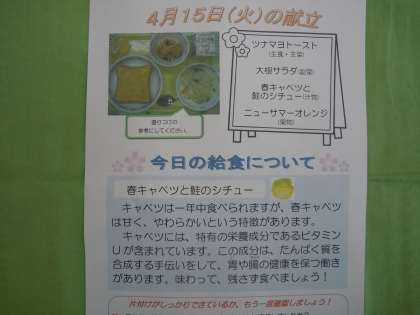 4月15日(火)の献立
ツナマヨトースト
(主食・主菜)
大根サラダ(副菜)
春キャベツと
鮭のシチュー(汁物)
ニューサマーオレンジ
(果物)
盛りつけの
参考にしてください。
今日の給食について
春キャベツと鮭のシチュー
キャベツは一年中食べられますが、春キャベツ
は甘く、やわらかいという特徴があります。
キャベツには、特有の栄養成分であるビタミン
Uが含まれています。この成分は、たんぱく質を
合成する手伝いをして、胃や腸の健康を保つ働き
があります。味わって、残さず食べましょう！
片付けがしっかりできているか、もう一度確認しましょう！